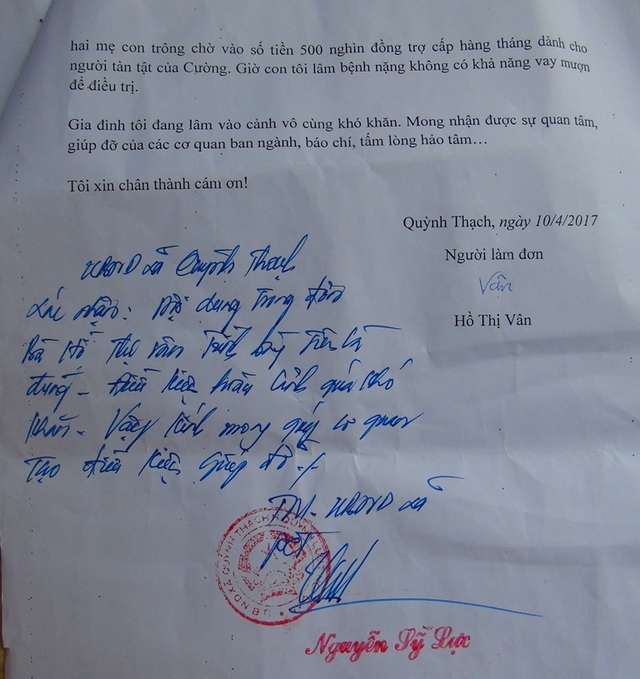 hai mẹ con trông chờ vào số tiền 500 nghìn đồng trợ cấp hàng tháng dành cho
người tàn tật của Cường. Giờ con tôi lâm bệnh nặng không có khả năng vay mượn
để điều trị.
Gia đình tôi đang lâm vào cảnh vô cùng khó khăn. Mong nhận được sự quan tâm,
giúp đỡ của các cơ quan ban ngành, báo chí, tấm lòng hảo tâm…
Tôi xin chân thành cám ơn!
Quỳnh Thạch, ngày 10/4/2017
Người làm đơn
Vân
Hồ Thị Vân
UBND xã Quỳnh Thạch
Xác nhận: Nội dung trong đơn
Bà Hồ Thị Vân trình bày trên là
đúng - Điều kiện hoàn cảnh quá khó
khăn - Vậy kính mong quý cơ quan
tạo điều kiện giúp đỡ./
TM - UBND xã
PCT
U.B.N.D XÃ QUỲNH THẠCH
Nguyễn Sỹ Lực